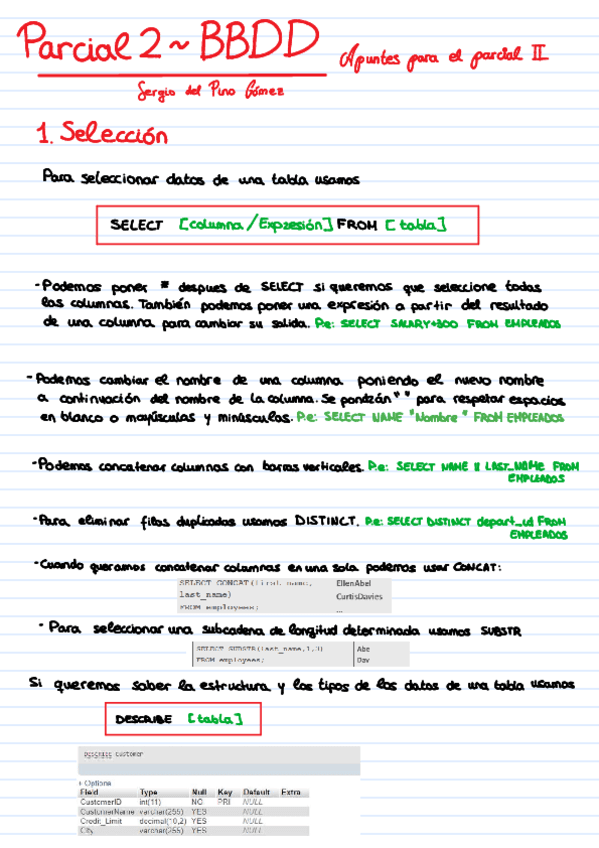 Parcial 2 ~ BBDD Apuntes para el parcial II
Sergio del Pino Gómez
1. Selección
Para seleccionar datos de una tabla usamos
SELECT [columna/Expresión] FROM [tabla]
- Podemos poner * despues de SELECT si queremos que seleccione todas
las columnas. También podemos poner una expresión a partir del resultado
de una columna para cambiar su salida. P.e: SELECT SALARY+300 FROM EMPLEADOS
- Podemos cambiar el nombre de una columna poniendo el nuevo nombre
a continuación del nombre de la columna. Se pondrán " " para respetar espacios
en blanco o mayúsculas y minúsculas. P.e: SELECT NAME "Nombre" FROM EMPLEADOS
- Podemos concatenar columnas con barras verticales. P.e: SELECT NAME || LAST_NAME FROM
EMPLEADOS
- Para eliminar filas duplicadas usamos DISTINCT. P.e: SELECT DISTINCT depart_id FROM
EMPLEADOS
- Cuando queramos concatenar columnas en una sola podemos usar CONCAT:
SELECT CONCAT(first_name, EllenAbel
last_name) CurtisDavies
FROM employees; ...
- Para seleccionar una subcadena de longitud determinada usamos SUBSTR
SELECT SUBSTR(last_name,1,3) Abe
FROM employees; Dav
Si queremos saber la estructura y los tipos de los datos de una tabla usamos
DESCRIBE [tabla]
DESCRIBE customer
+ Options
Field Type Null Key Default Extra
CustomerID int(11) NO PRI NULL
CustomerName varchar(255) YES NULL
Credit_Limit decimal(10,2) YES NULL
City varchar(255) YES NULL